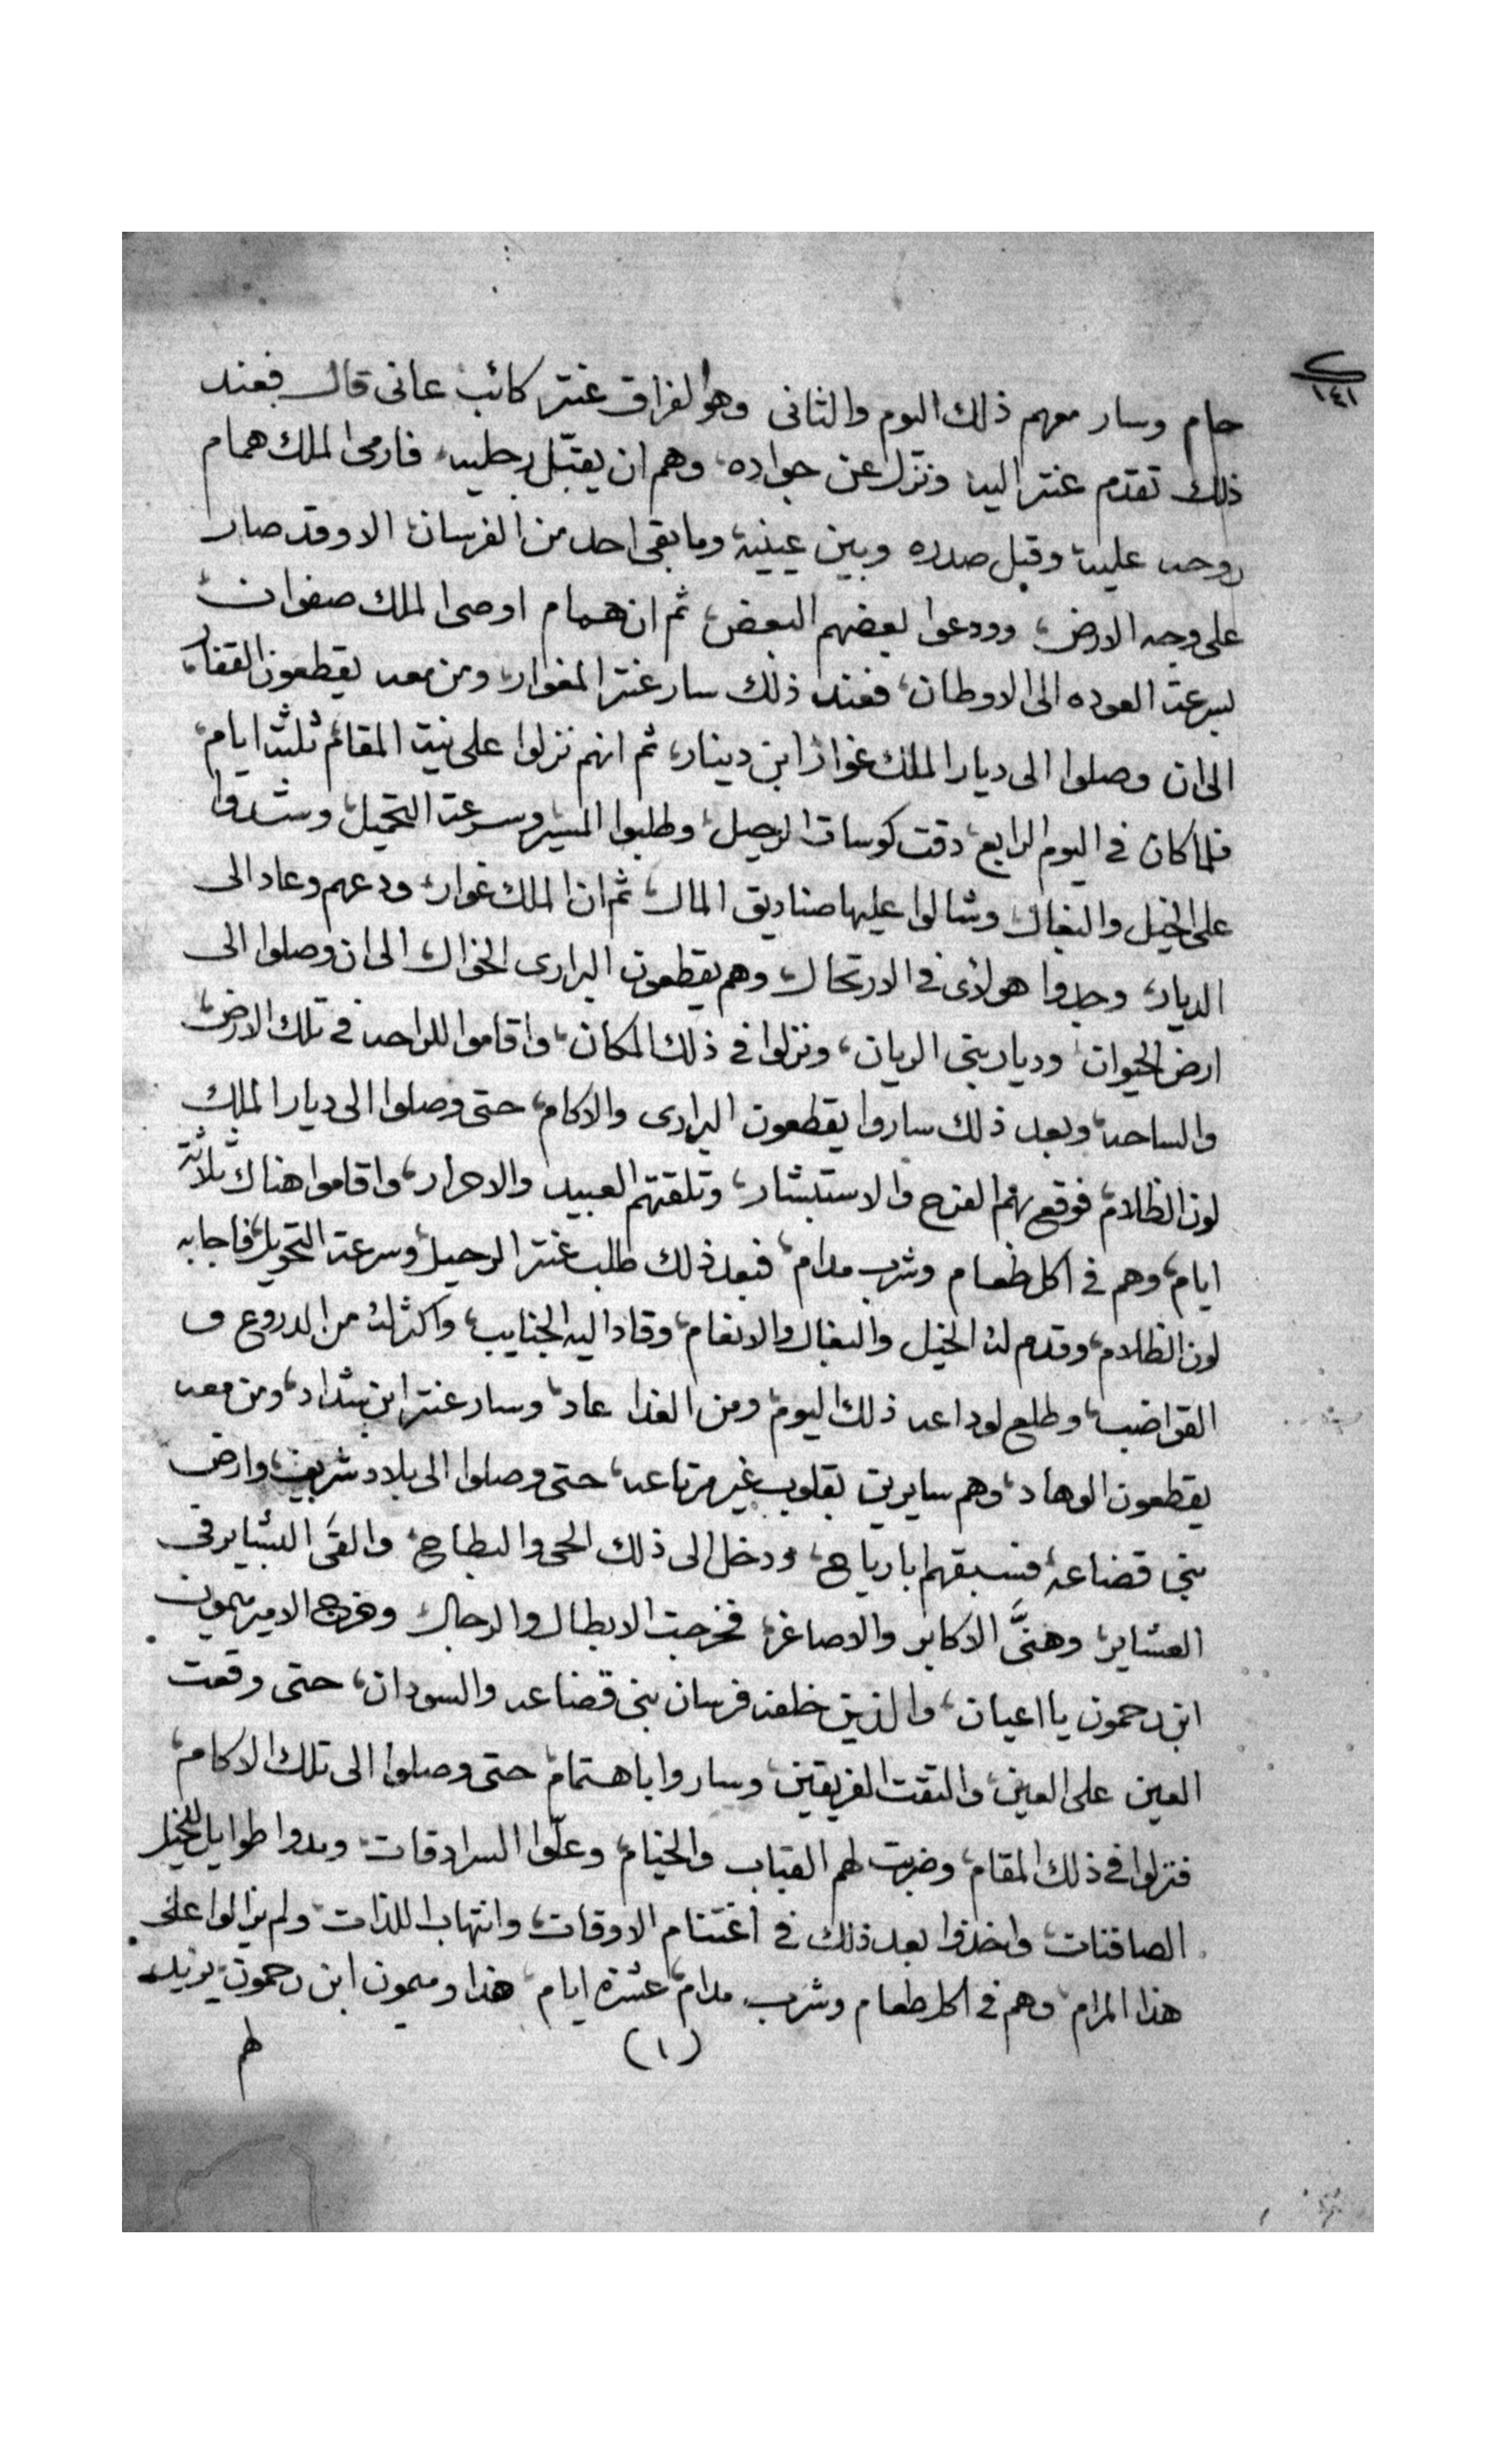 ١٤١
حام وسار معهم ذلك اليوم والثانى وهو لفراق عنتر كائب عانى قال فعند
ذلك تقدم عنتر اليه ونزل عن جواده، وهم ان يقبّل رجليه، فارمى الملك همام
روحه عليه وقبل صدره وبين عينيه، وما بقى احد من الفرسان، الا وقد صار
على وجه الارض، وودعوا بعضهم البعض، ثم ان همام اوصى الملك صفوان
بسرعة العوده الى الاوطان، فعند ذلك سار عنتر المغوار، ومن معه يقطعون القفار،
الى ان وصلوا الى ديار الملك غوار ابن دينار، ثم انهم نزلوا على نية المقام ثلثة ايام،
فلما كان فى اليوم الرابع، دقت كوسات الرحيل، وطلبوا المسير وسرعة التحميل، وشدوا
على الخيل والبغال، وشالوا عليها صناديق المال، ثم ان الملك غوار، ودعهم وعاد الى
الديار، وجدوا هولاى فى الارتحال، وهم يقطعون البرارى الخوال، الى ان وصلوا الى
ارض الحيوان، وديار بنى الريان، ونزلوا فى ذلك المكان، واقاموا للراحه فى تلك الارض،
والساحه، وبعد ذلك ساروا يقطعون البرارى والاكام، حتى وصلوا الى ديار الملك
لون الظلام، فوقع بهم الفرح والاستبشار، وتلقتهم العبيد والاحرار، واقاموا هناك ثلاثة
ايام، وهم فى اكل طعام وشرب مدام، فبعد ذلك طلب عنتر الرحيل، وسرعة التحويل، فاجابه
لون الظلام، وقدم له الخيل والبغال والانعام، وقاد اليه الجنايب، واكثر له من الدروع و
القواضب، وطلع لوداعه ذلك اليوم، ومن الغدا عاد، وسار عنتر ابن شداد، ومن معه
يقطعون الوهاد، وهم سايرين بقلوب غير مرتاعه، حتى وصلوا الى بلاد شريف، وارض
بنى قضاعه، فسبقهم ابا رياح، ودخل الى ذلك الحى والبطاح، والقَى البشاير فى
العشاير، وهنَّى الاكابر والاصاغر، فخرجت الابطال والرجال وخرج الامير ميمون
ابن رحمون يا اعيان، والذين خلفه فرسان بنى قضاعه والسودان، حتى وقعت
العين على العين، والتقت الفريقين، وساروا باهتمام، حتى وصلوا الى تلك الاكام،
فنزلوا فى ذلك المقام، وضربت لهم القباب والخيام، وعلّوا السرادقات، ومدوا طوايل للخيل
الصافنات، واخذوا بعد ذلك فى اغتنام الاوقات، وانتهاب اللذات، ولم يزالوا على
هذا المرام، وهم فى اكل طعام وشرب مدام، عشرة ايام، هذا وميمون ابن رحمون، يزيد
(١)